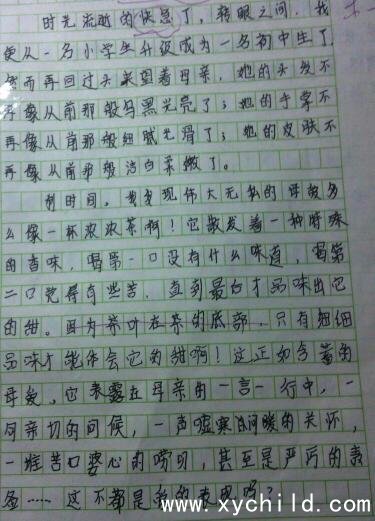 时光流逝的快急了，转眼之间，我
便从一名小学生升级成为一名初中生了
然而再回过头来望着母亲，她的头发不
再像从前那般乌黑光亮了；她的手掌不
再像从前那般细腻光滑了；她的皮肤不
再像从前那般洁白柔嫩了。
刹时间，我发现伟大无私的母爱多
么像一杯浓浓茶啊！它散发着一种特殊
的香味，喝第一口没有什么味道，喝第
二口觉得有些苦，直到最后才品味出它
的甜。因为茶叶在茶的底部，只有细细
品味才能体会它的甜啊！这正如含蓄的
母爱，它表露在母亲的一言一行中，一
句亲切的问候，一声嘘寒问暖的关怀，
一堆苦口婆心的唠叨，甚至是严厉的责
备……这不都是爱的表现吗？
www.xychild.com